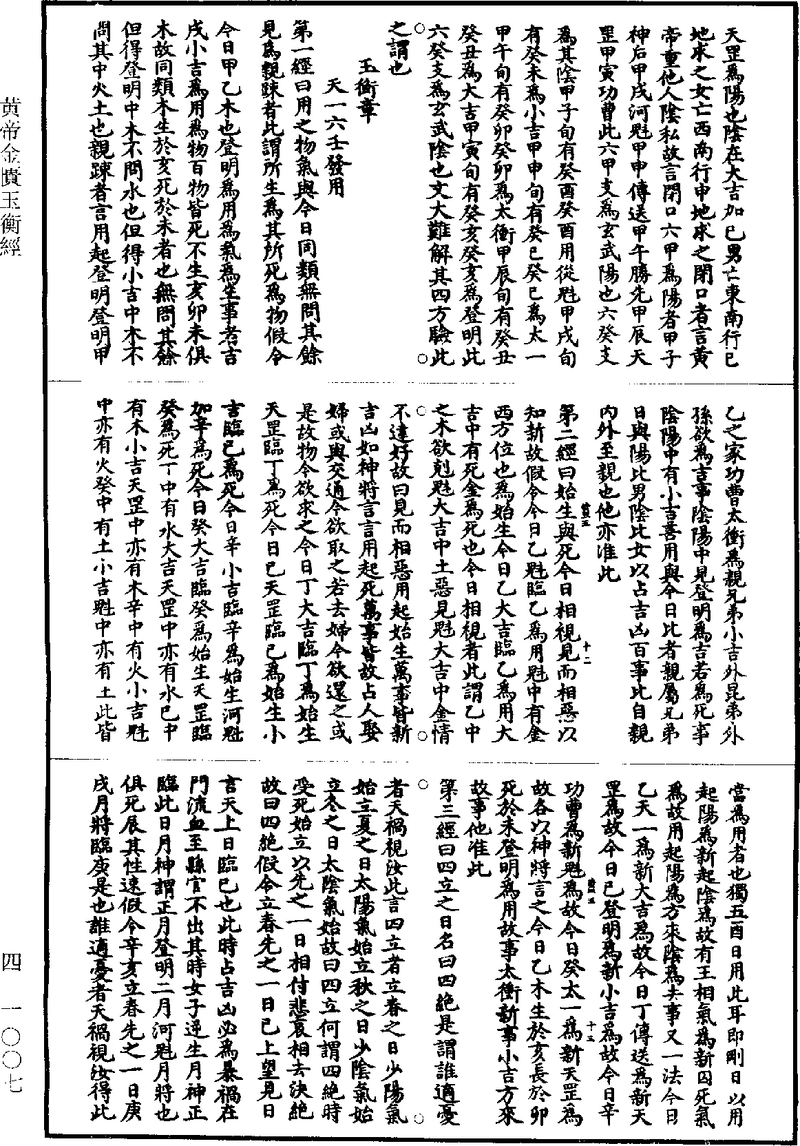 天罡為陽也陰在大吉加巳男亡東南行巳
地求之女亡西南行申地求之閉口者言黃
帝重他人陰私故言閉口六甲為陽者甲子
神后甲戌河魁甲申傳送甲午勝先甲辰天
罡甲寅功曹此六甲支為玄武陽也六癸支
為其陰甲子旬有癸酉癸酉用從魁甲戌旬
有癸未為小吉甲申旬有癸巳癸巳為太一
甲午旬有癸卯癸卯為太衝甲辰旬有癸丑
癸丑為大吉甲寅旬有癸亥癸亥為登明此
六癸支為玄武陰也文大難解其四方驗此
之謂也
玉衡章
天一六壬發用
第一經曰用之物氣與今日同類無問其餘
見為親踈者此謂所生為其所死為物假令
今日甲乙木也登明為用為氣為生事者吉
戌小吉為用為物百物皆死不生亥卯未俱
木故同類木生於亥死於未者也無問其餘
但得登明中木不問水也但得小吉中木不
問其中火土也親踈者言用起登明登明甲
乙之家功曹太衝為親兄弟小吉外昆弟外
孫欲為吉事陰陽中見登明為吉若為死事
陰陽中有小吉善用與今日比者親屬兄弟
日與陽比男陰比女以占吉凶百事比自親
內外至親也他亦准此
第二經曰始生與死今日相視見而相惡以
知新故假令今日乙魁臨乙為用魁中有金
西方位也為始生今日乙大吉臨乙為用大
吉中有死金為死也今日相視者此謂乙中
之木欲剋魁大吉中土惡見魁大吉中金情
不達好故曰見而相惡用起始生萬事皆新
吉凶如神將言言用起死萬事皆故占人娶
婦或與交通今欲取之若去婦今欲還之或
是故物今欲求之今日丁大吉臨丁為始生
天罡臨丁為死今日巳天罡臨巳為始生小
吉臨巳為死今日辛小吉臨辛為始生河魁
加辛為死今日癸大吉臨癸為始生天罡臨
癸為死丁中有水大吉天罡中亦有水巳中
有木小吉天罡中亦有木辛中有火小吉魁
中亦有火癸中有土小吉魁中亦有土此皆
當為用者也獨五酉日用此耳即剛日以用
起陽為新起陰為故有王相氣為新囚死氣
為故用起陽為方來陰為去事又一法今日
乙天一為新大吉為故今日丁傳送為新天
罡為故今日巳登明為新小吉為故今日辛
功曹為新魁為故今日癸太一為新天罡為
故各以神將言之今日乙木生於亥長於卯
死於未登明為用故事太衝新事小吉方來
故事他准此
第三經曰四立之日名曰四絕是謂誰適憂
者天禍視汝此言四立者立春之日少陽氣
始立夏之日太陽氣始立秋之日少陰氣始
立冬之日太陰氣始故曰四立何謂四絕時
受死始立以先之一日相付悲哀相去決絕
故曰四絕假令立春先之一日巳上望見日
言天上日臨巳也此時占吉凶必為暴禍在
門流血至縣官不出其時女子逆生月神正
臨此日月神謂正月登明二月河魁月將也
俱死辰其性速假令辛亥立春先之一日庚
戌月將臨庚是也誰適憂者天禍視汝得此
十二
十三
黄帝金匱玉衡經
四 一〇〇七